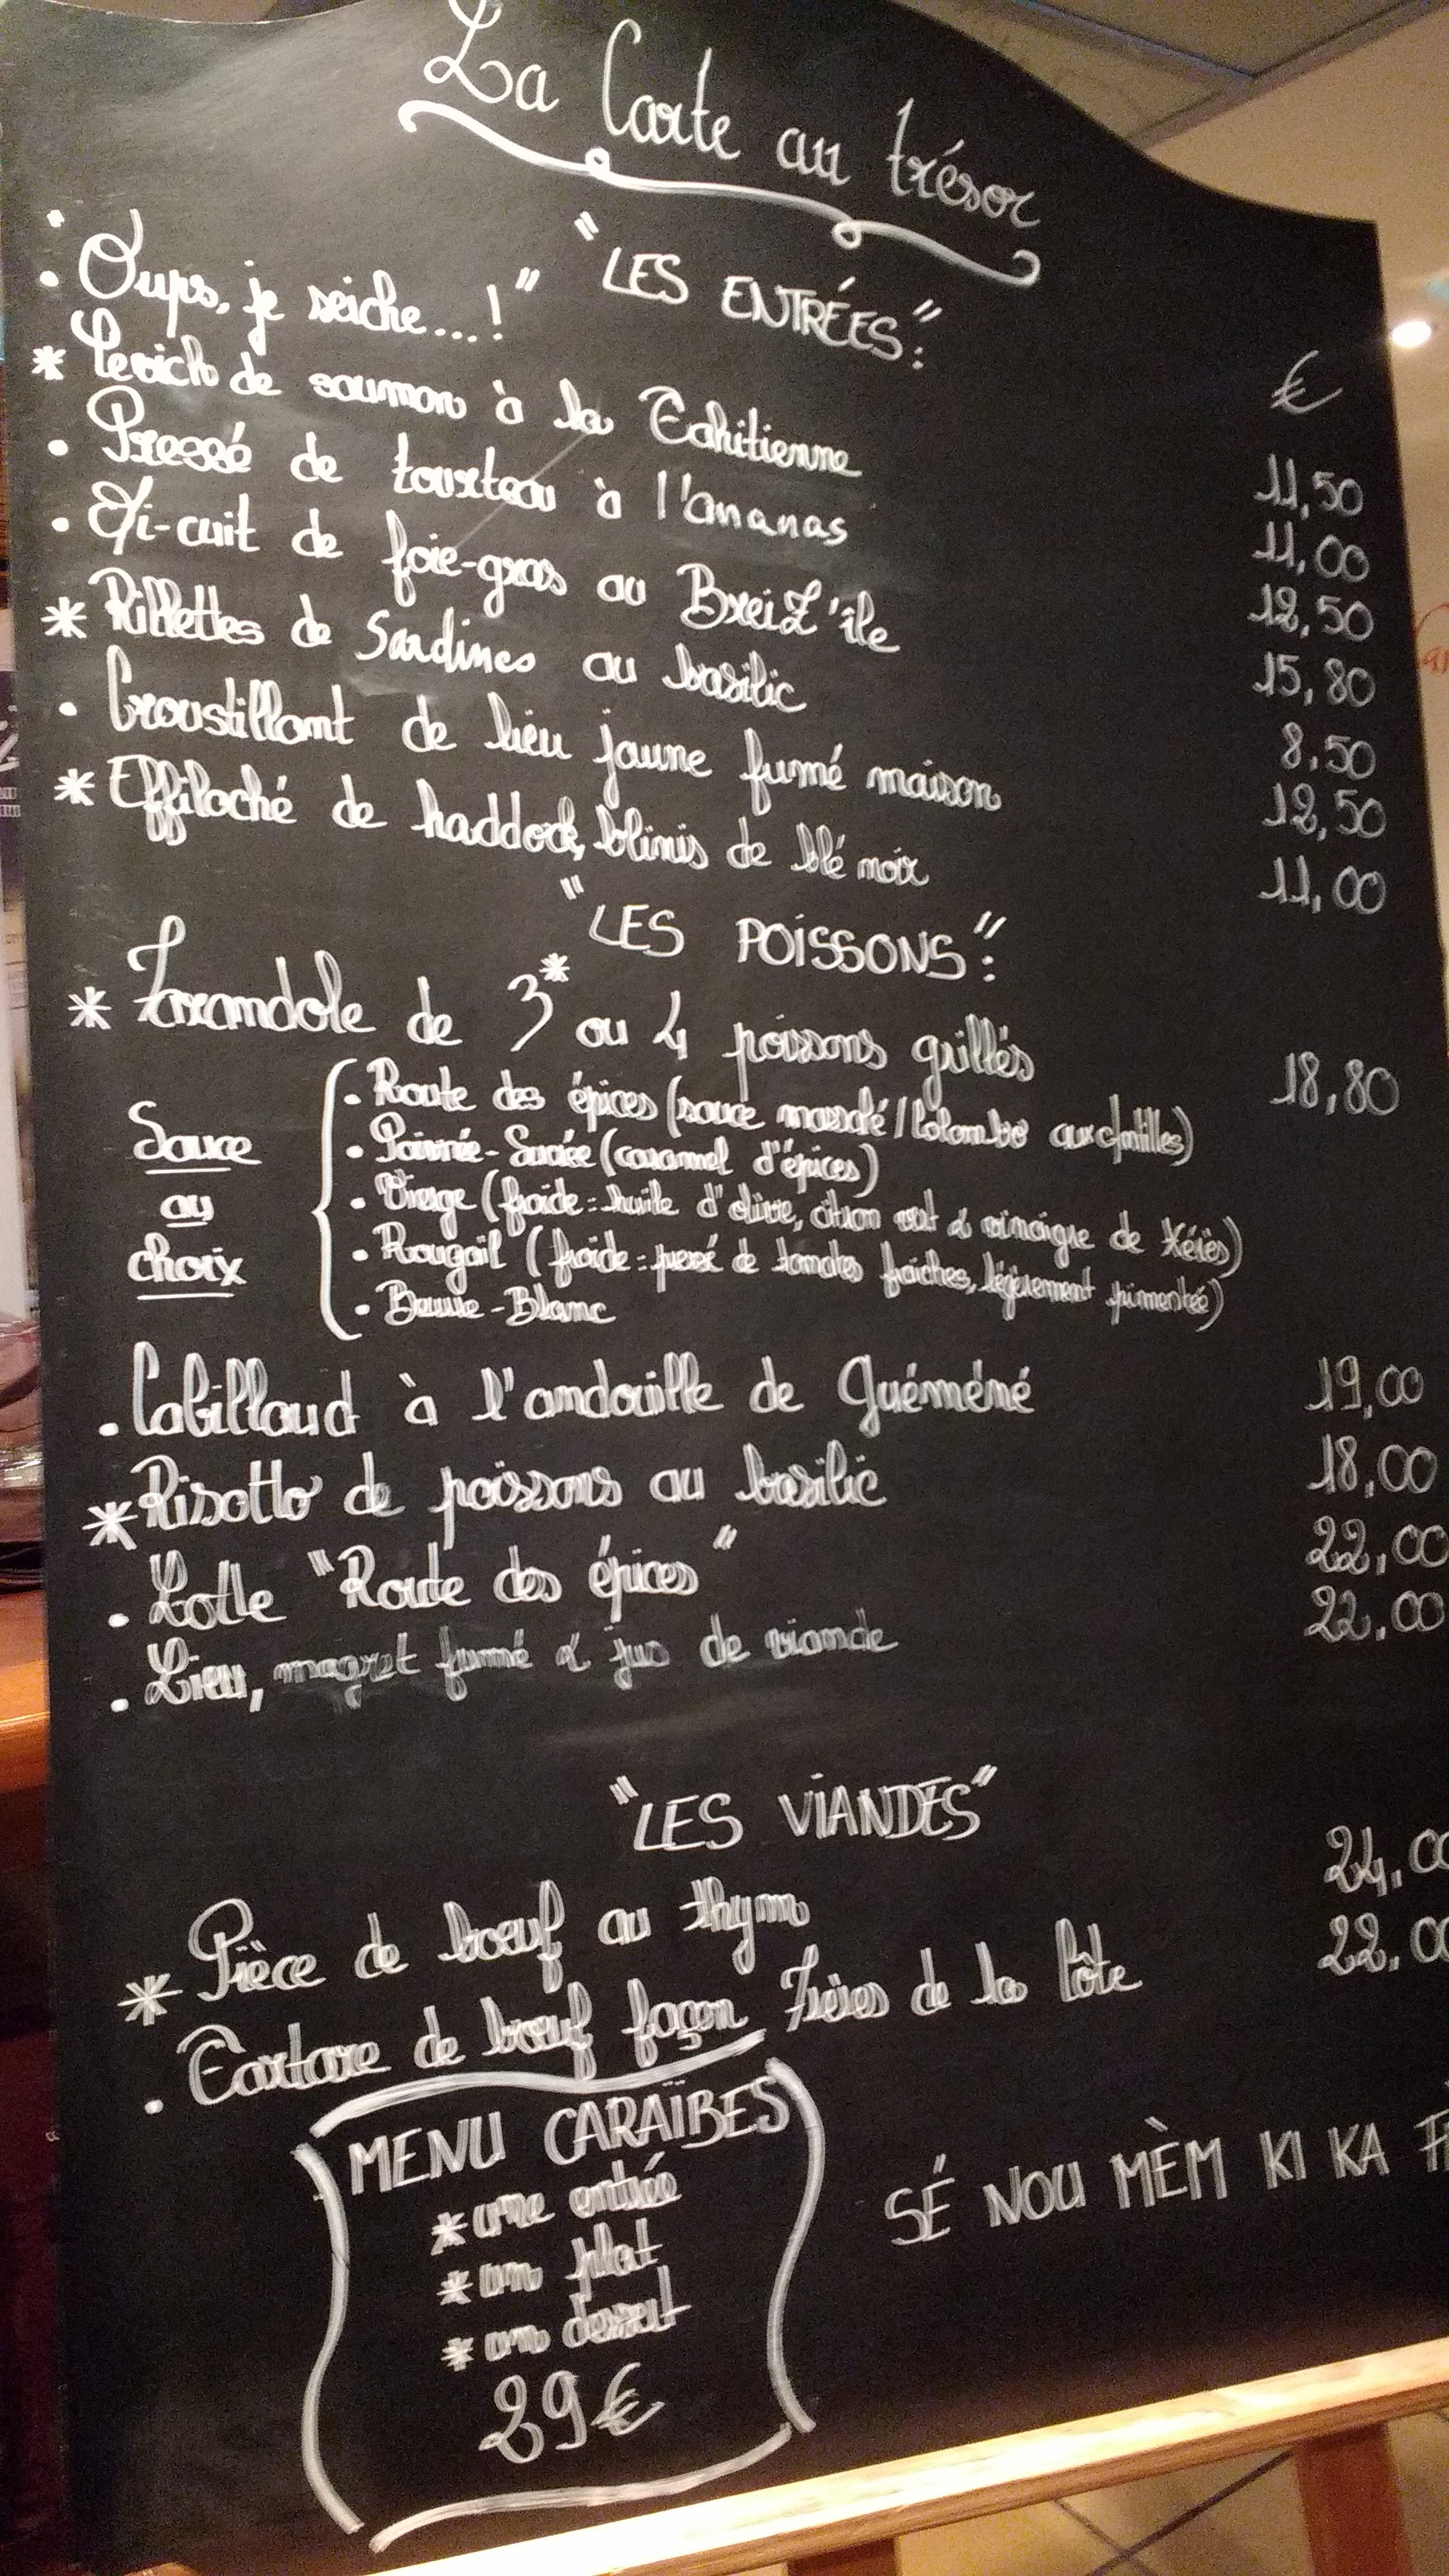 La Carte au trésor
"LES ENTRÉES":
€
• "Oups, je seiche...!" 11,50
* Cevich de saumon à la Tahitienne 11,00
• Pressé de tourteau à l'ananas 12,50
• Mi-cuit de foie-gras au BreiZ'île 15,80
* Rillettes de Sardines au basilic 8,50
• Croustillant de lieu jaune fumé maison 12,50
* Effiloché de haddock, blinis de blé noir 11,00
"LES POISSONS":
* Farandole de 3* ou 4 poissons grillés 18,80
Sauce au choix
• Route des épices (sauce massalé/Colombo aux Antilles)
• Poivrée-Sucrée (caramel d'épices)
• Vierge (froide: huile d'olive, citron vert & vinaigre de Xérès)
• Rougail (froide: pressé de tomates fraîches, légèrement pimentée)
• Beurre-Blanc
• Cabillaud à l'andouille de Guéméné 19,00
* Risotto de poissons au basilic 18,00
• Lotte "Route des épices" 22,00
• Lieu, magret fumé & jus de viande 22,00
"LES VIANDES"
* Pièce de bœuf au thym 24,00
• Tartare de bœuf façon Frères de la Côte 22,00
MENU CARAÏBES
* une entrée
* un plat
* un dessert
29€
SÉ NOU MÈM KI KA